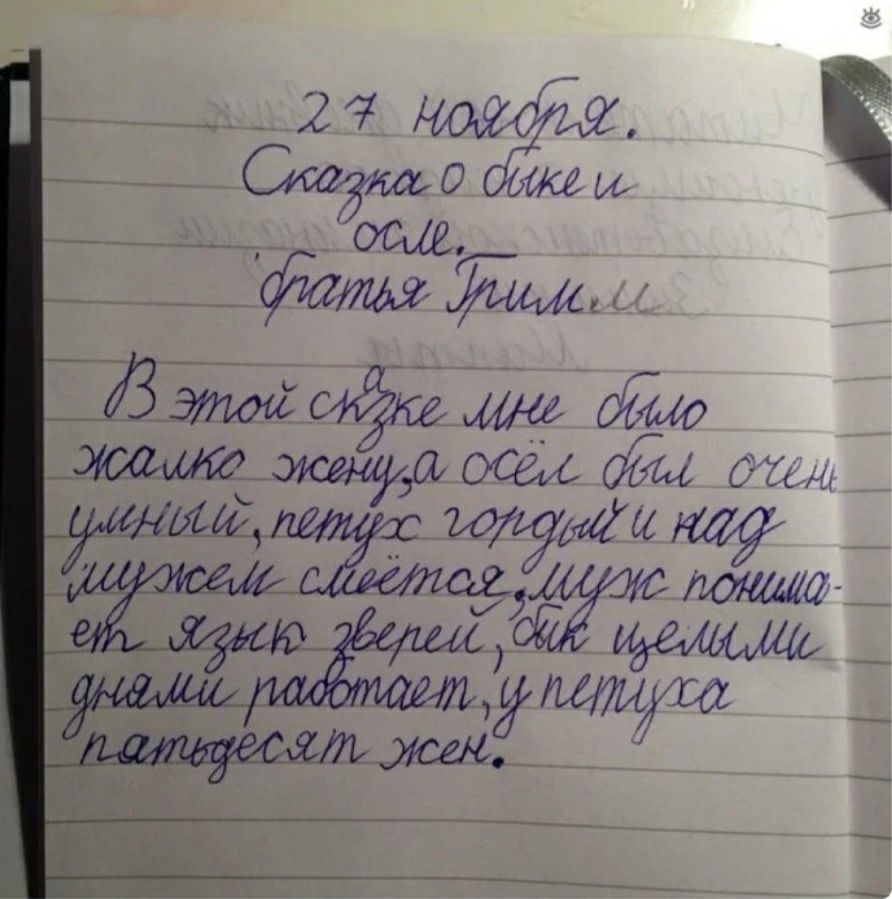 27 ноября.
Сказка о быке и
осле.
братья Гримм
В этой сказке мне было
жалко жену, а осёл был очень
умный, петух гордый и над
мужем смеётся, муж понима-
ет язык зверей, бык целыми
днями работает, у петуха
пятьдесят жен.